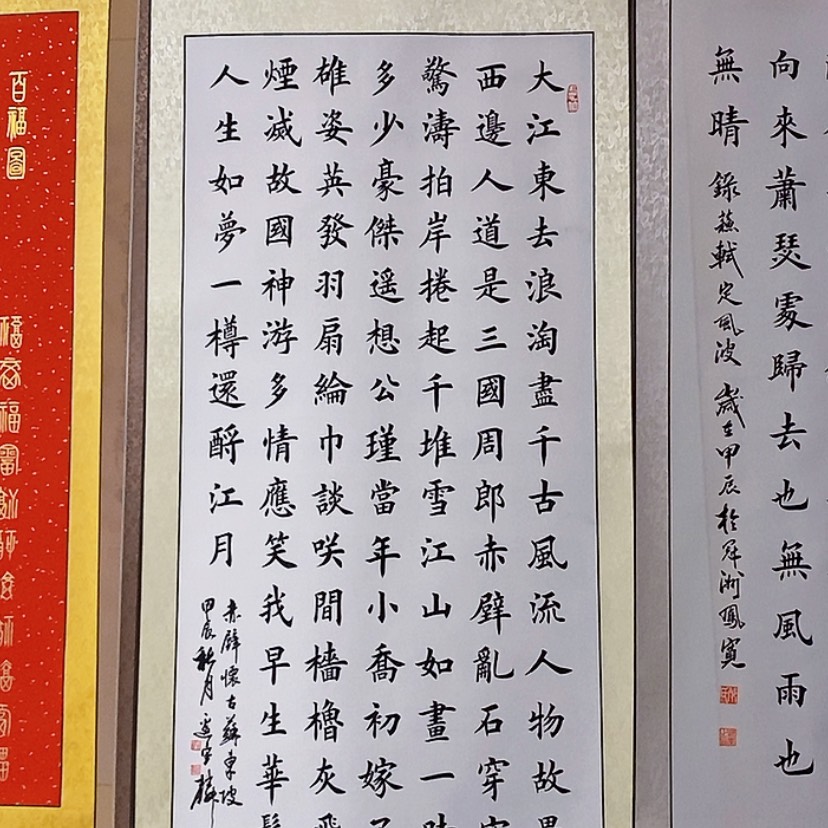 向來蕭瑟處歸去也無風雨也
無晴 錄蘇軾定風波 歲在甲辰於
大江東去浪淘盡千古風流人物故
西邊人道是三國周郎赤壁亂石穿空
驚濤拍岸捲起千堆雪江山如畫一時
多少豪傑遥想公瑾當年小喬初嫁了
雄姿英發羽扇綸巾談咲間檣櫓灰飛
煙滅故國神游多情應笑我早生華髮
人生如夢一樽還酹江月
赤壁懷古蘇東坡
甲辰秋月
百福圖